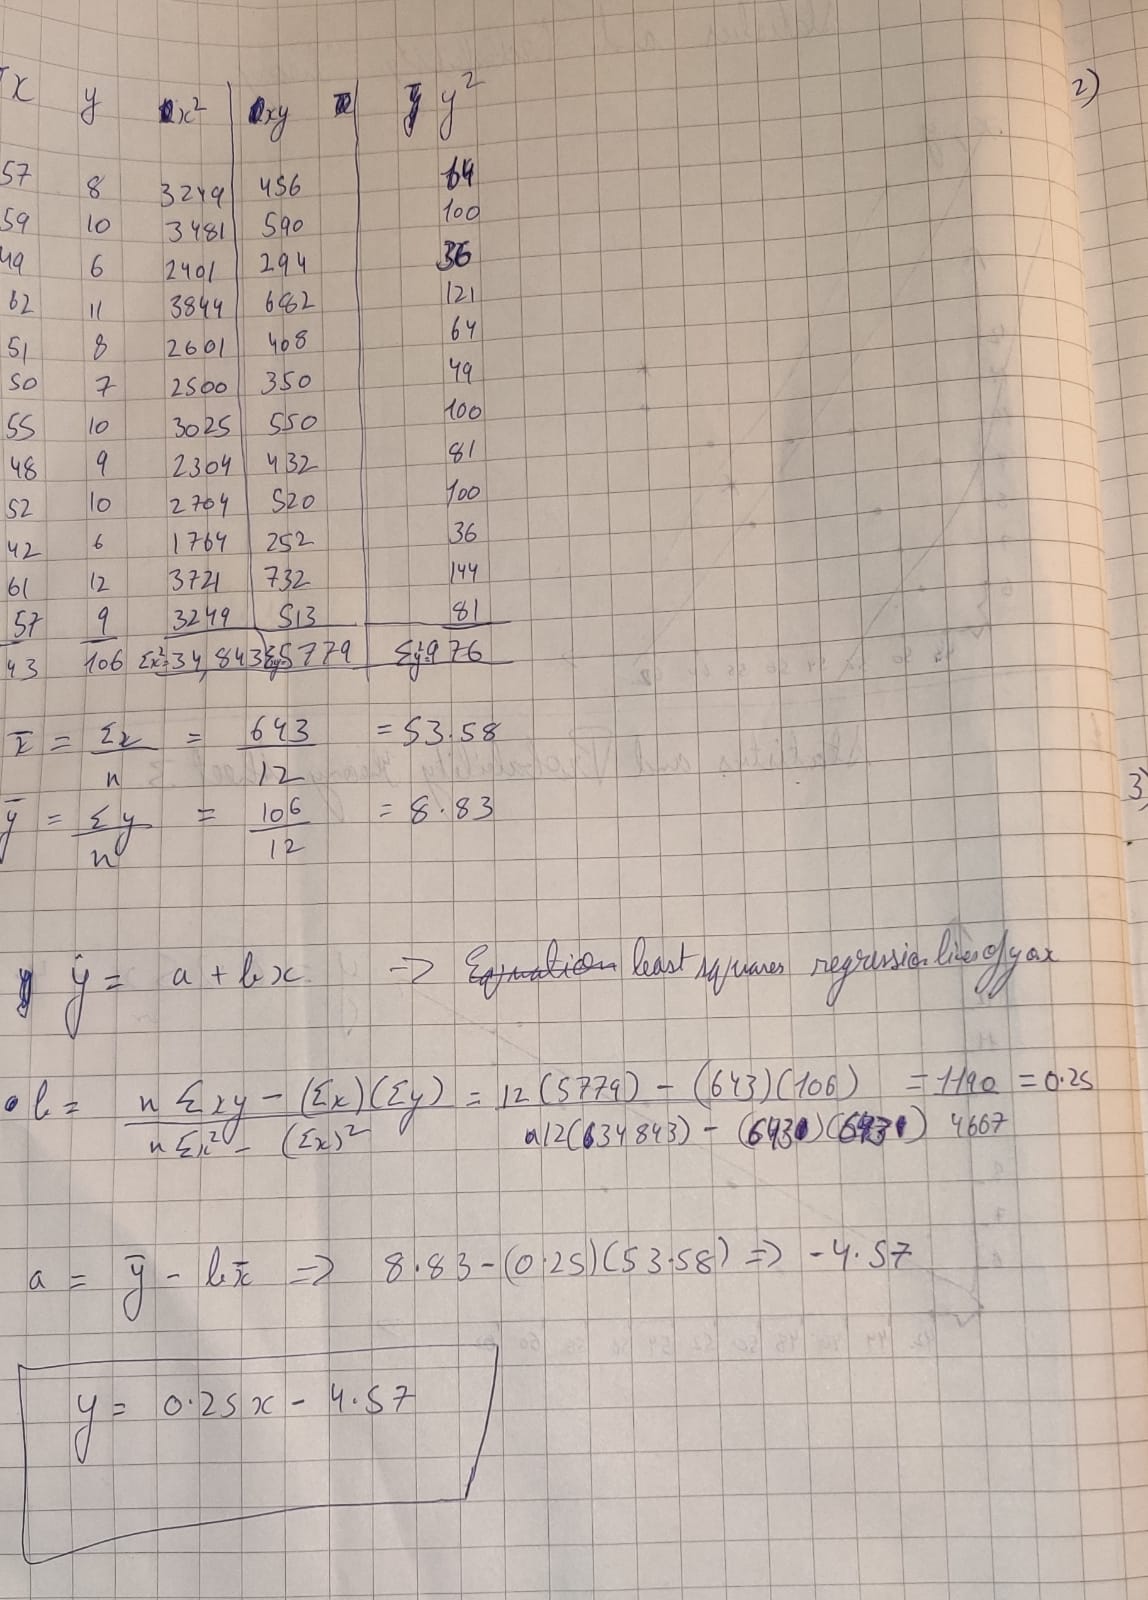 x y x² xy y²
57 8 3249 456 64
59 10 3481 590 100
49 6 2401 294 36
62 11 3844 682 121
51 8 2601 408 64
50 7 2500 350 49
55 10 3025 550 100
48 9 2304 432 81
52 10 2704 520 100
42 6 1764 252 36
61 12 3721 732 144
57 9 3249 513 81
43 106 Σx²=34,843 Σxy=5779 Σy²=976
x̄ = Σx/n = 643/12 = 53.58
ȳ = Σy/n = 106/12 = 8.83
ŷ = a + bx → Equation least squares regression line of y on x
• b = nΣxy - (Σx)(Σy) / nΣx² - (Σx)² = 12(5779) - (643)(106) / 12(34843) - (643)(643) = 1190/4667 = 0.25
a = ȳ - bx̄ => 8.83 - (0.25)(53.58) => -4.57
y = 0.25x - 4.57
2)
3)